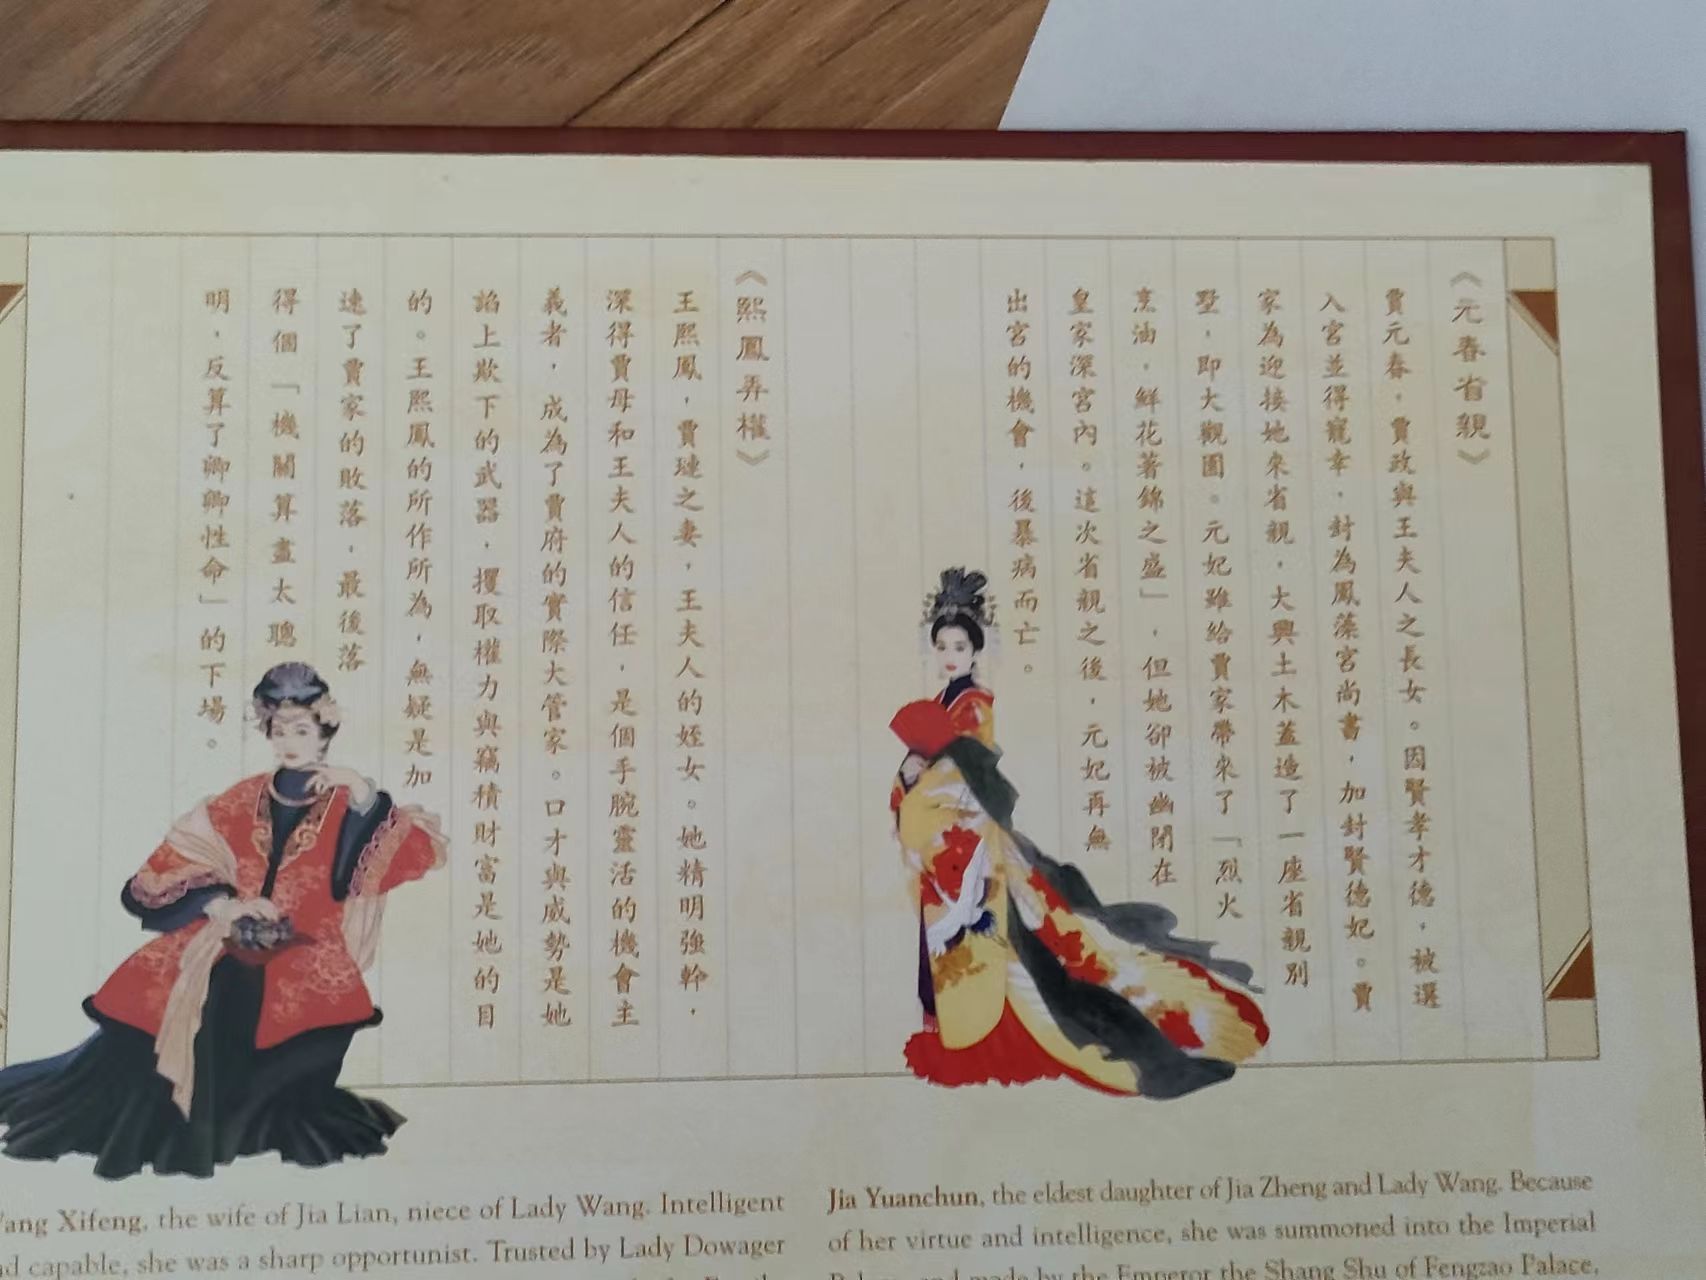 《元春省親》
賈元春，賈政與王夫人之長女。因賢孝才德，被選
入宮並得寵幸，封為鳳藻宮尚書，加封賢德妃。賈
家為迎接她來省親，大興土木蓋造了一座省親別
墅，即大觀園。元妃雖給賈家帶來了「烈火
烹油，鮮花著錦之盛」，但她卻被幽閉在
皇家深宮內。這次省親之後，元妃再無
出宮的機會，後暴病而亡。
《熙鳳弄權》
王熙鳳，賈璉之妻，王夫人的姪女。她精明強幹，
深得賈母和王夫人的信任，是個手腕靈活的機會主
義者，成為了賈府的實際大管家。口才與威勢是她
諂上欺下的武器，攫取權力與竊積財富是她的目
的。王熙鳳的所作所為，無疑是加
速了賈家的敗落，最後落
得個「機關算盡太聰
明，反算了卿卿性命」的下場。
Wang Xifeng, the wife of Jia Lian, niece of Lady Wang. Intelligent
and capable, she was a sharp opportunist. Trusted by Lady Dowager
Jia Yuanchun, the eldest daughter of Jia Zheng and Lady Wang. Because
of her virtue and intelligence, she was summoned into the Imperial
Palace, and made by the Emperor the Shang Shu of Fengzao Palace,